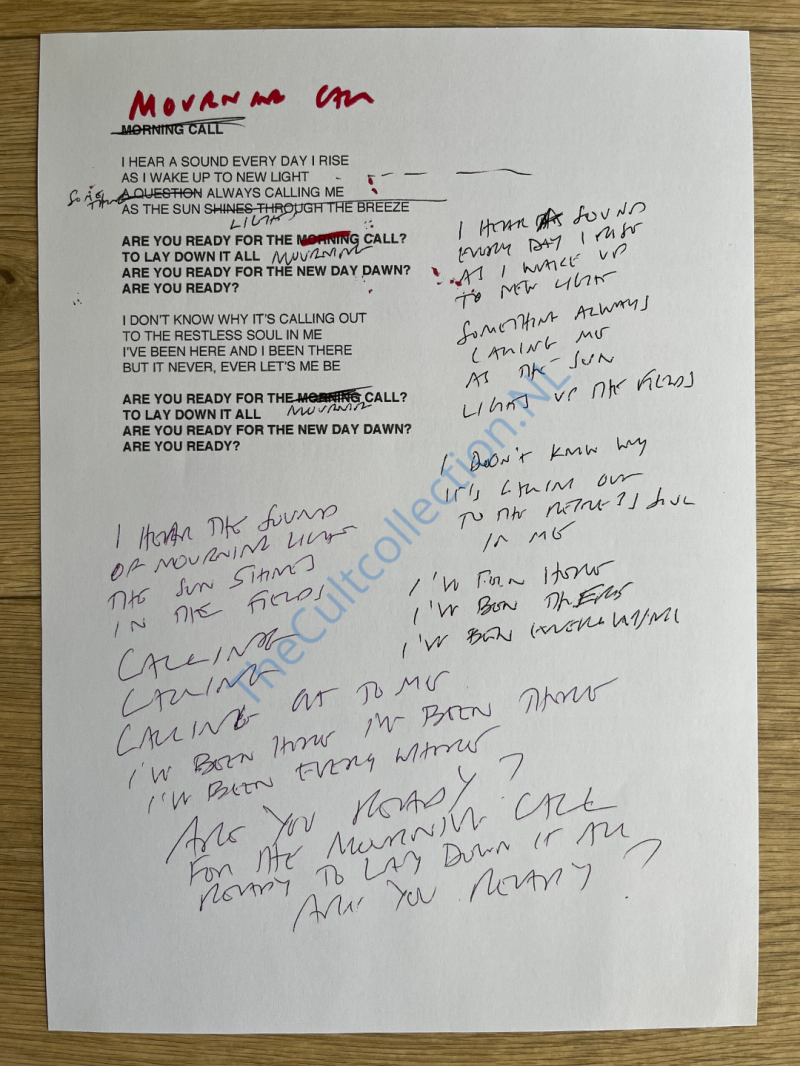 MOURNING CALL
MORNING CALL
I HEAR A SOUND EVERY DAY I RISE
AS I WAKE UP TO NEW LIGHT
SOMETHING
A QUESTION ALWAYS CALLING ME
AS THE SUN SHINES THROUGH THE BREEZE
LIGHTS
ARE YOU READY FOR THE MORNING CALL?
TO LAY DOWN IT ALL MOURNING
ARE YOU READY FOR THE NEW DAY DAWN?
ARE YOU READY?
I DON'T KNOW WHY IT'S CALLING OUT
TO THE RESTLESS SOUL IN ME
I'VE BEEN HERE AND I BEEN THERE
BUT IT NEVER, EVER LET'S ME BE
ARE YOU READY FOR THE MORNING CALL?
TO LAY DOWN IT ALL MOURNING
ARE YOU READY FOR THE NEW DAY DAWN?
ARE YOU READY?
I HEAR A SOUND
EVERY DAY I RISE
AS I WAKE UP
TO NEW LIGHT
SOMETHING ALWAYS
CALLING ME
AS THE SUN
LIGHTS UP THE FIELDS
I DON'T KNOW WHY
IT'S CALLING OUT
TO THE RESTLESS SOUL
IN ME
I'VE BEEN HERE
I'VE BEEN THERE
I'VE BEEN EVERYWHERE
I HEAR THE SOUND
OF MOURNING LIGHT
THE SUN SHINES
IN THE FIELDS
CALLING
CALLING
CALLING OUT TO ME
I'VE BEEN HERE I'VE BEEN THERE
I'VE BEEN EVERY WHERE
ARE YOU READY?
FOR THE MOURNING CALL
READY TO LAY DOWN IT ALL
ARE YOU READY?
TheCultcollection.NL